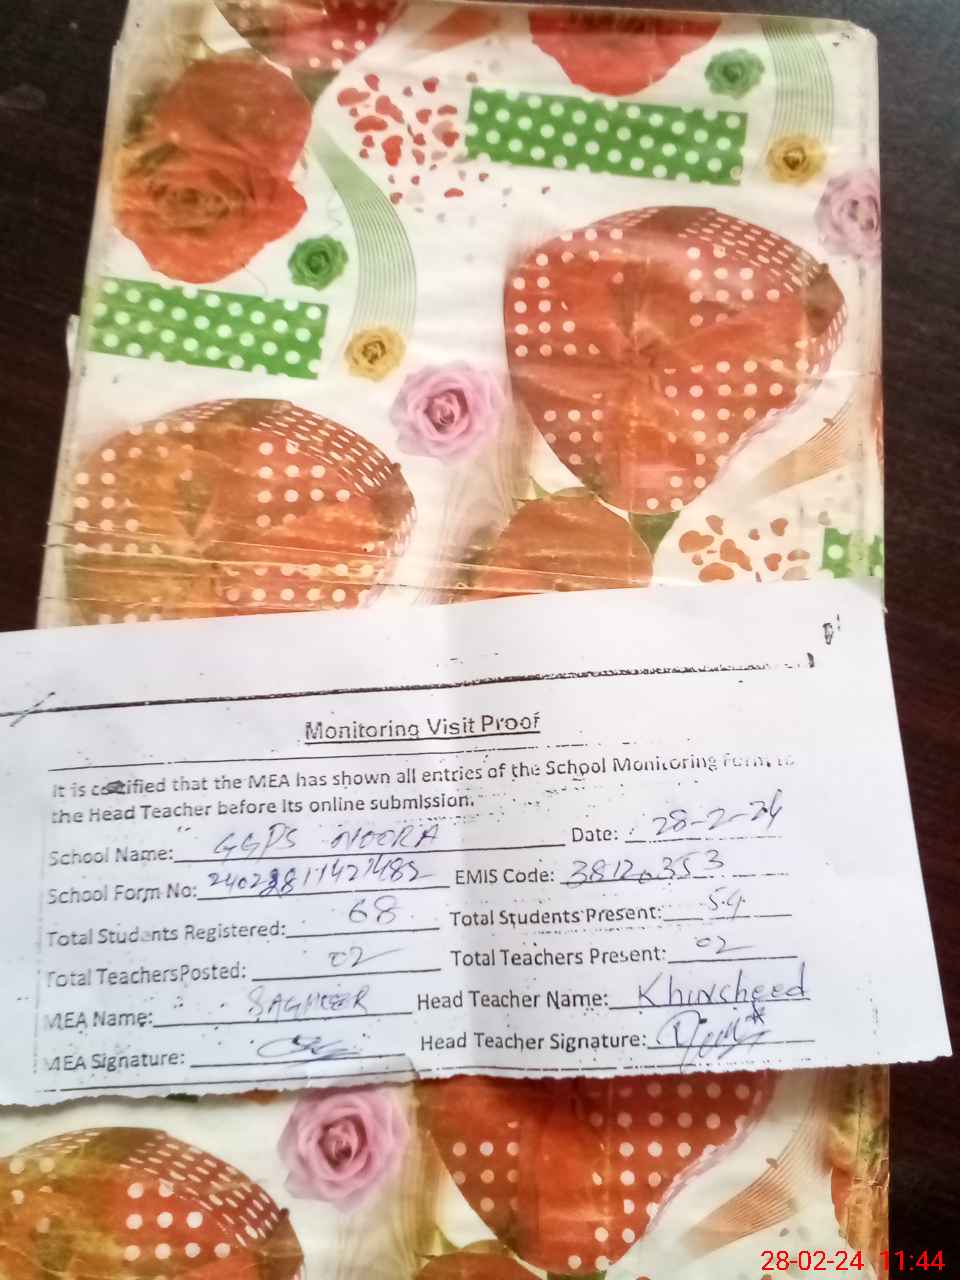 Monitoring Visit Proof
It is certified that the MEA has shown all entries of the School Monitoring Form to
the Head Teacher before its online submission.
School Name: GGPS NOORA Date: 28-2-24
School Form No: 24022811427482 EMIS Code: 38120353
Total Students Registered: 68 Total Students Present: 59
Total Teachers Posted: 02 Total Teachers Present: 02
MEA Name: SAGHEER Head Teacher Name: Khursheed
MEA Signature: Head Teacher Signature:
28-02-24 11:44